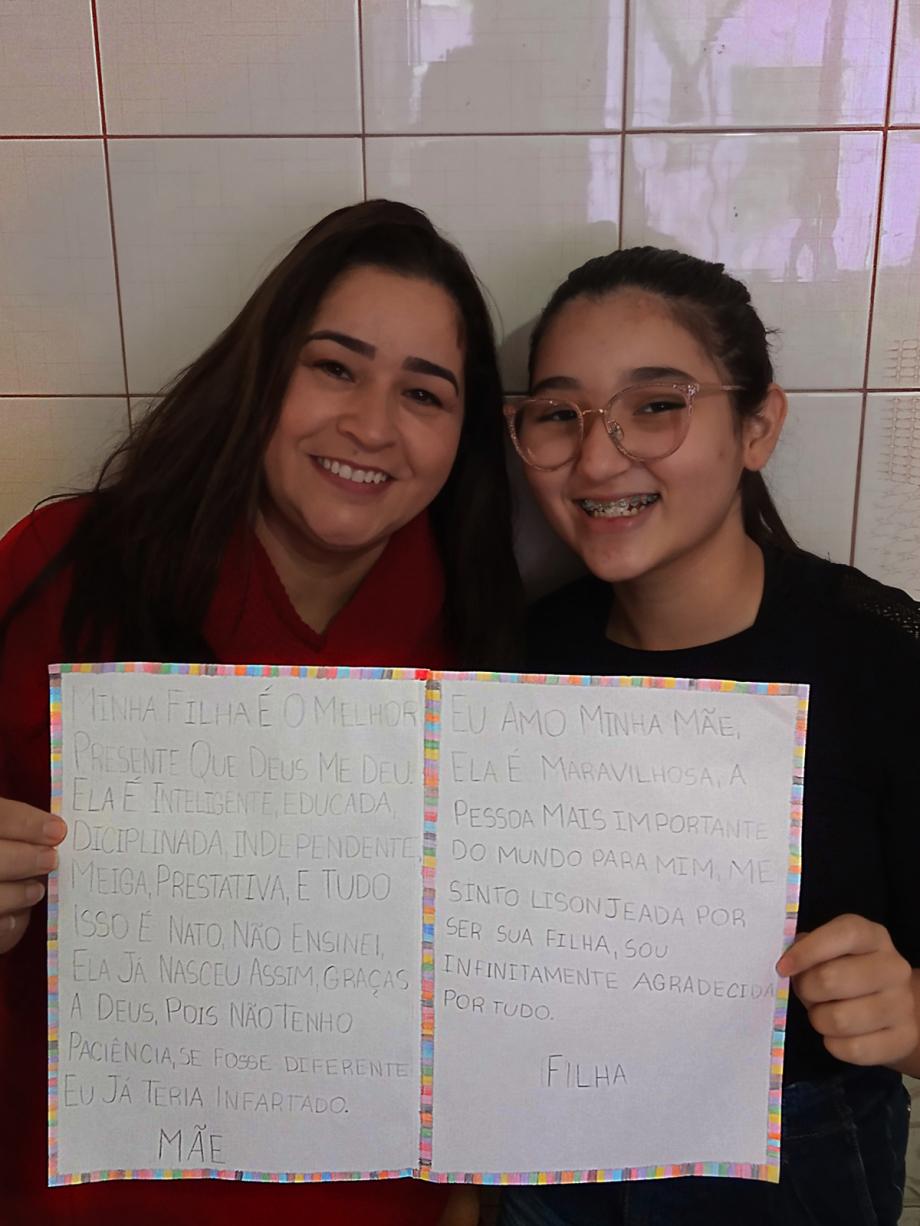 MINHA FILHA É O MELHOR
PRESENTE QUE DEUS ME DEU.
ELA É INTELIGENTE, EDUCADA,
DICIPLINADA, INDEPENDENTE,
MEIGA, PRESTATIVA, E TUDO
ISSO É NATO, NÃO ENSINEI,
ELA JÁ NASCEU ASSIM, GRAÇAS
A DEUS, POIS NÃO TENHO
PACIÊNCIA, SE FOSSE DIFERENTE
EU JÁ TERIA INFARTADO.
MÃE
EU AMO MINHA MÃE,
ELA É MARAVILHOSA, A
PESSOA MAIS IMPORTANTE
DO MUNDO PARA MIM, ME
SINTO LISONJEADA POR
SER SUA FILHA, SOU
INFINITAMENTE AGRADECIDA
POR TUDO.
FILHA